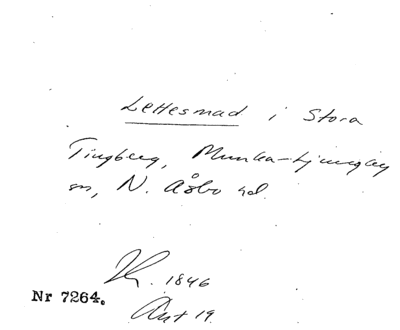 Lettesmad i Stora
Tingberg, Munka-Ljungby
sn, N. Åsbo hd.
1846
Nr 7264.
Akt 19.